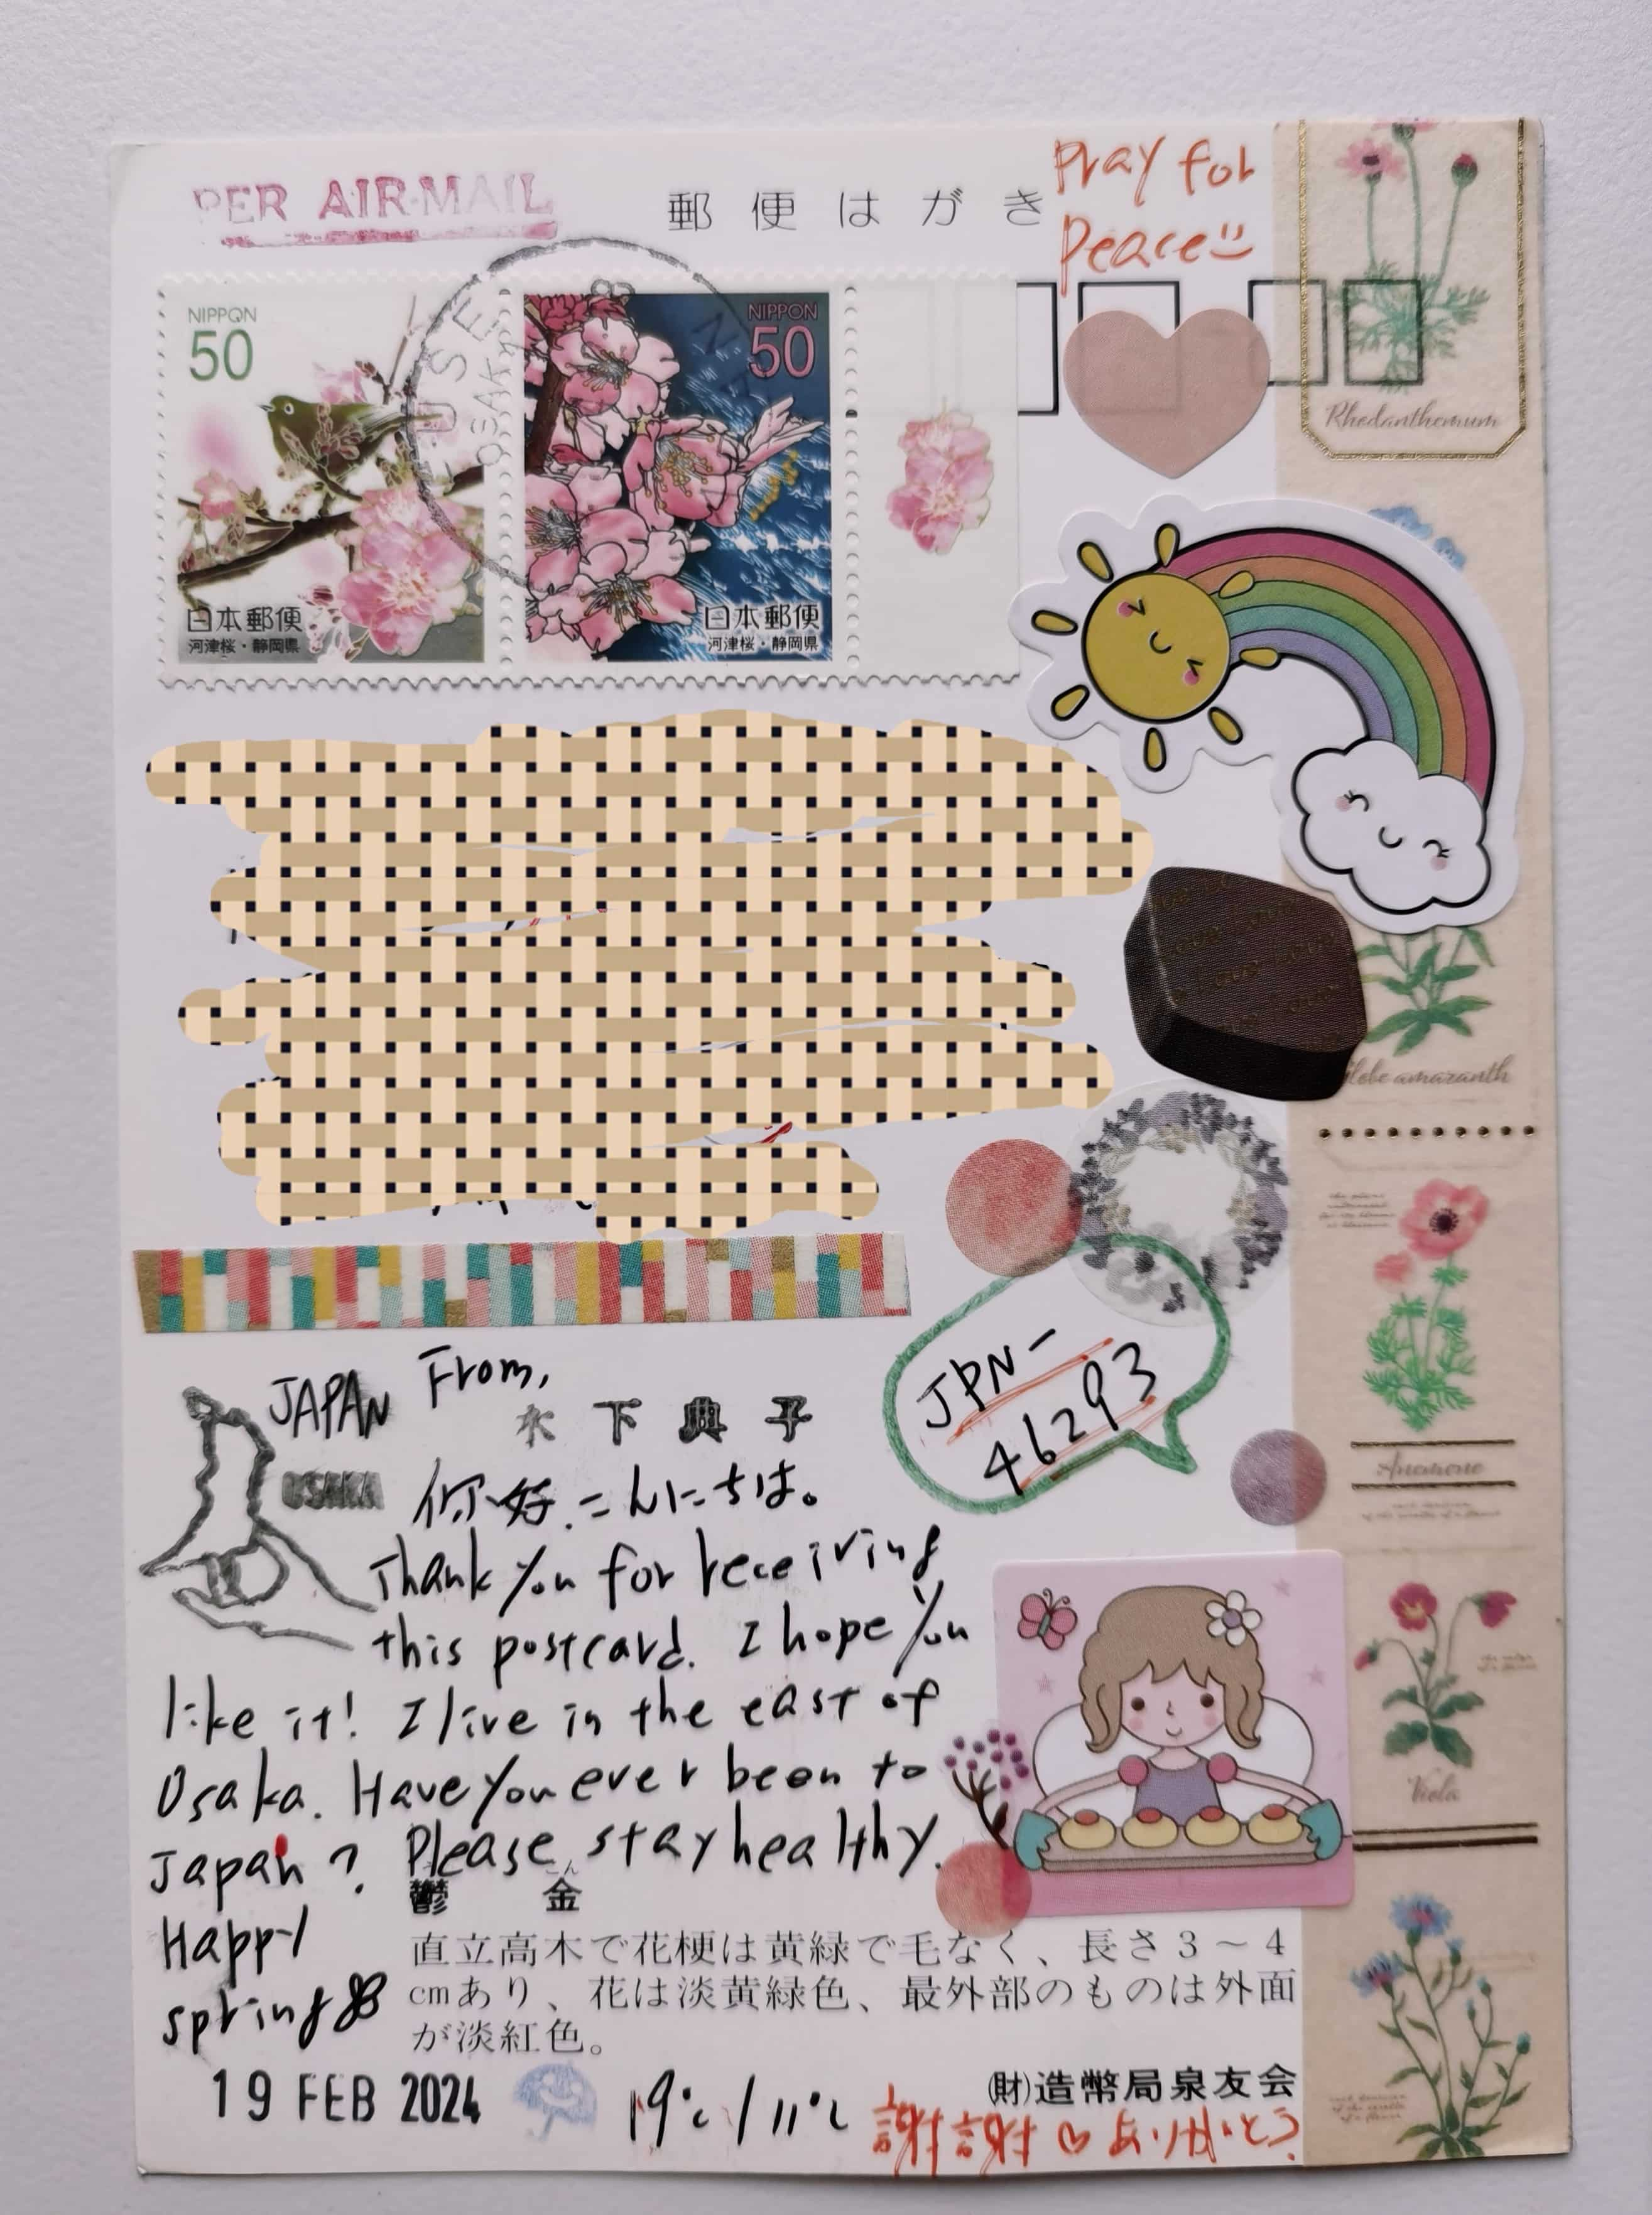 PER AIR MAIL
郵便はがき
Pray for
Peace
NIPPON
50
日本郵便
河津桜・静岡県
NIPPON
50
日本郵便
河津桜・静岡県
OSAKA
Rhodanthemum
amaranth
Anemone
Viola
JPN-
46293
JAPAN
OSAKA
From,
木下典子
你好.こんにちは。
Thank you for receiving
this postcard. I hope you
like it! I live in the east of
Osaka. Have you ever been to
Japan? Please stay healthy.
Happy
spring
こん
鬱金
直立高木で花梗は黄緑で毛なく、長さ3~4
cmあり、花は淡黄緑色、最外部のものは外面
が淡紅色。
19 FEB 2024
19℃/11℃
(財)造幣局泉友会
謝謝♡ありがとう